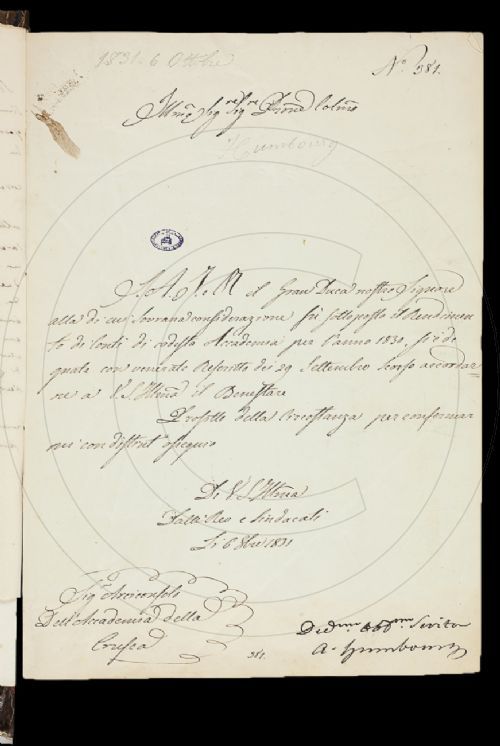 1831. 6 Ottbre
N.º 381.
Illmo Sigre Sigre Prone Colmo
Humbourg
S. A. I. e R. il Gran Duca nostro Signore
alla di cui Sovrana considerazione fu sottoposto il Rendimen
to di Conti di codesta Accademia per l'anno 1830. si è de
gnata con venerato Rescritto de' 29 Settembre scorso accordar
ne a V. S. Illma il Benestare
Profitto della Circostanza per confermar
mi con distinto ossequio
Di V. S. Illma
Dalle Reo e Sindacati
Li 6 8bre 1831
Sigre Arciconsolo
Dell'Accademia della
Crusca
381.
Devmo Obbmo Servito
A. Humbourg